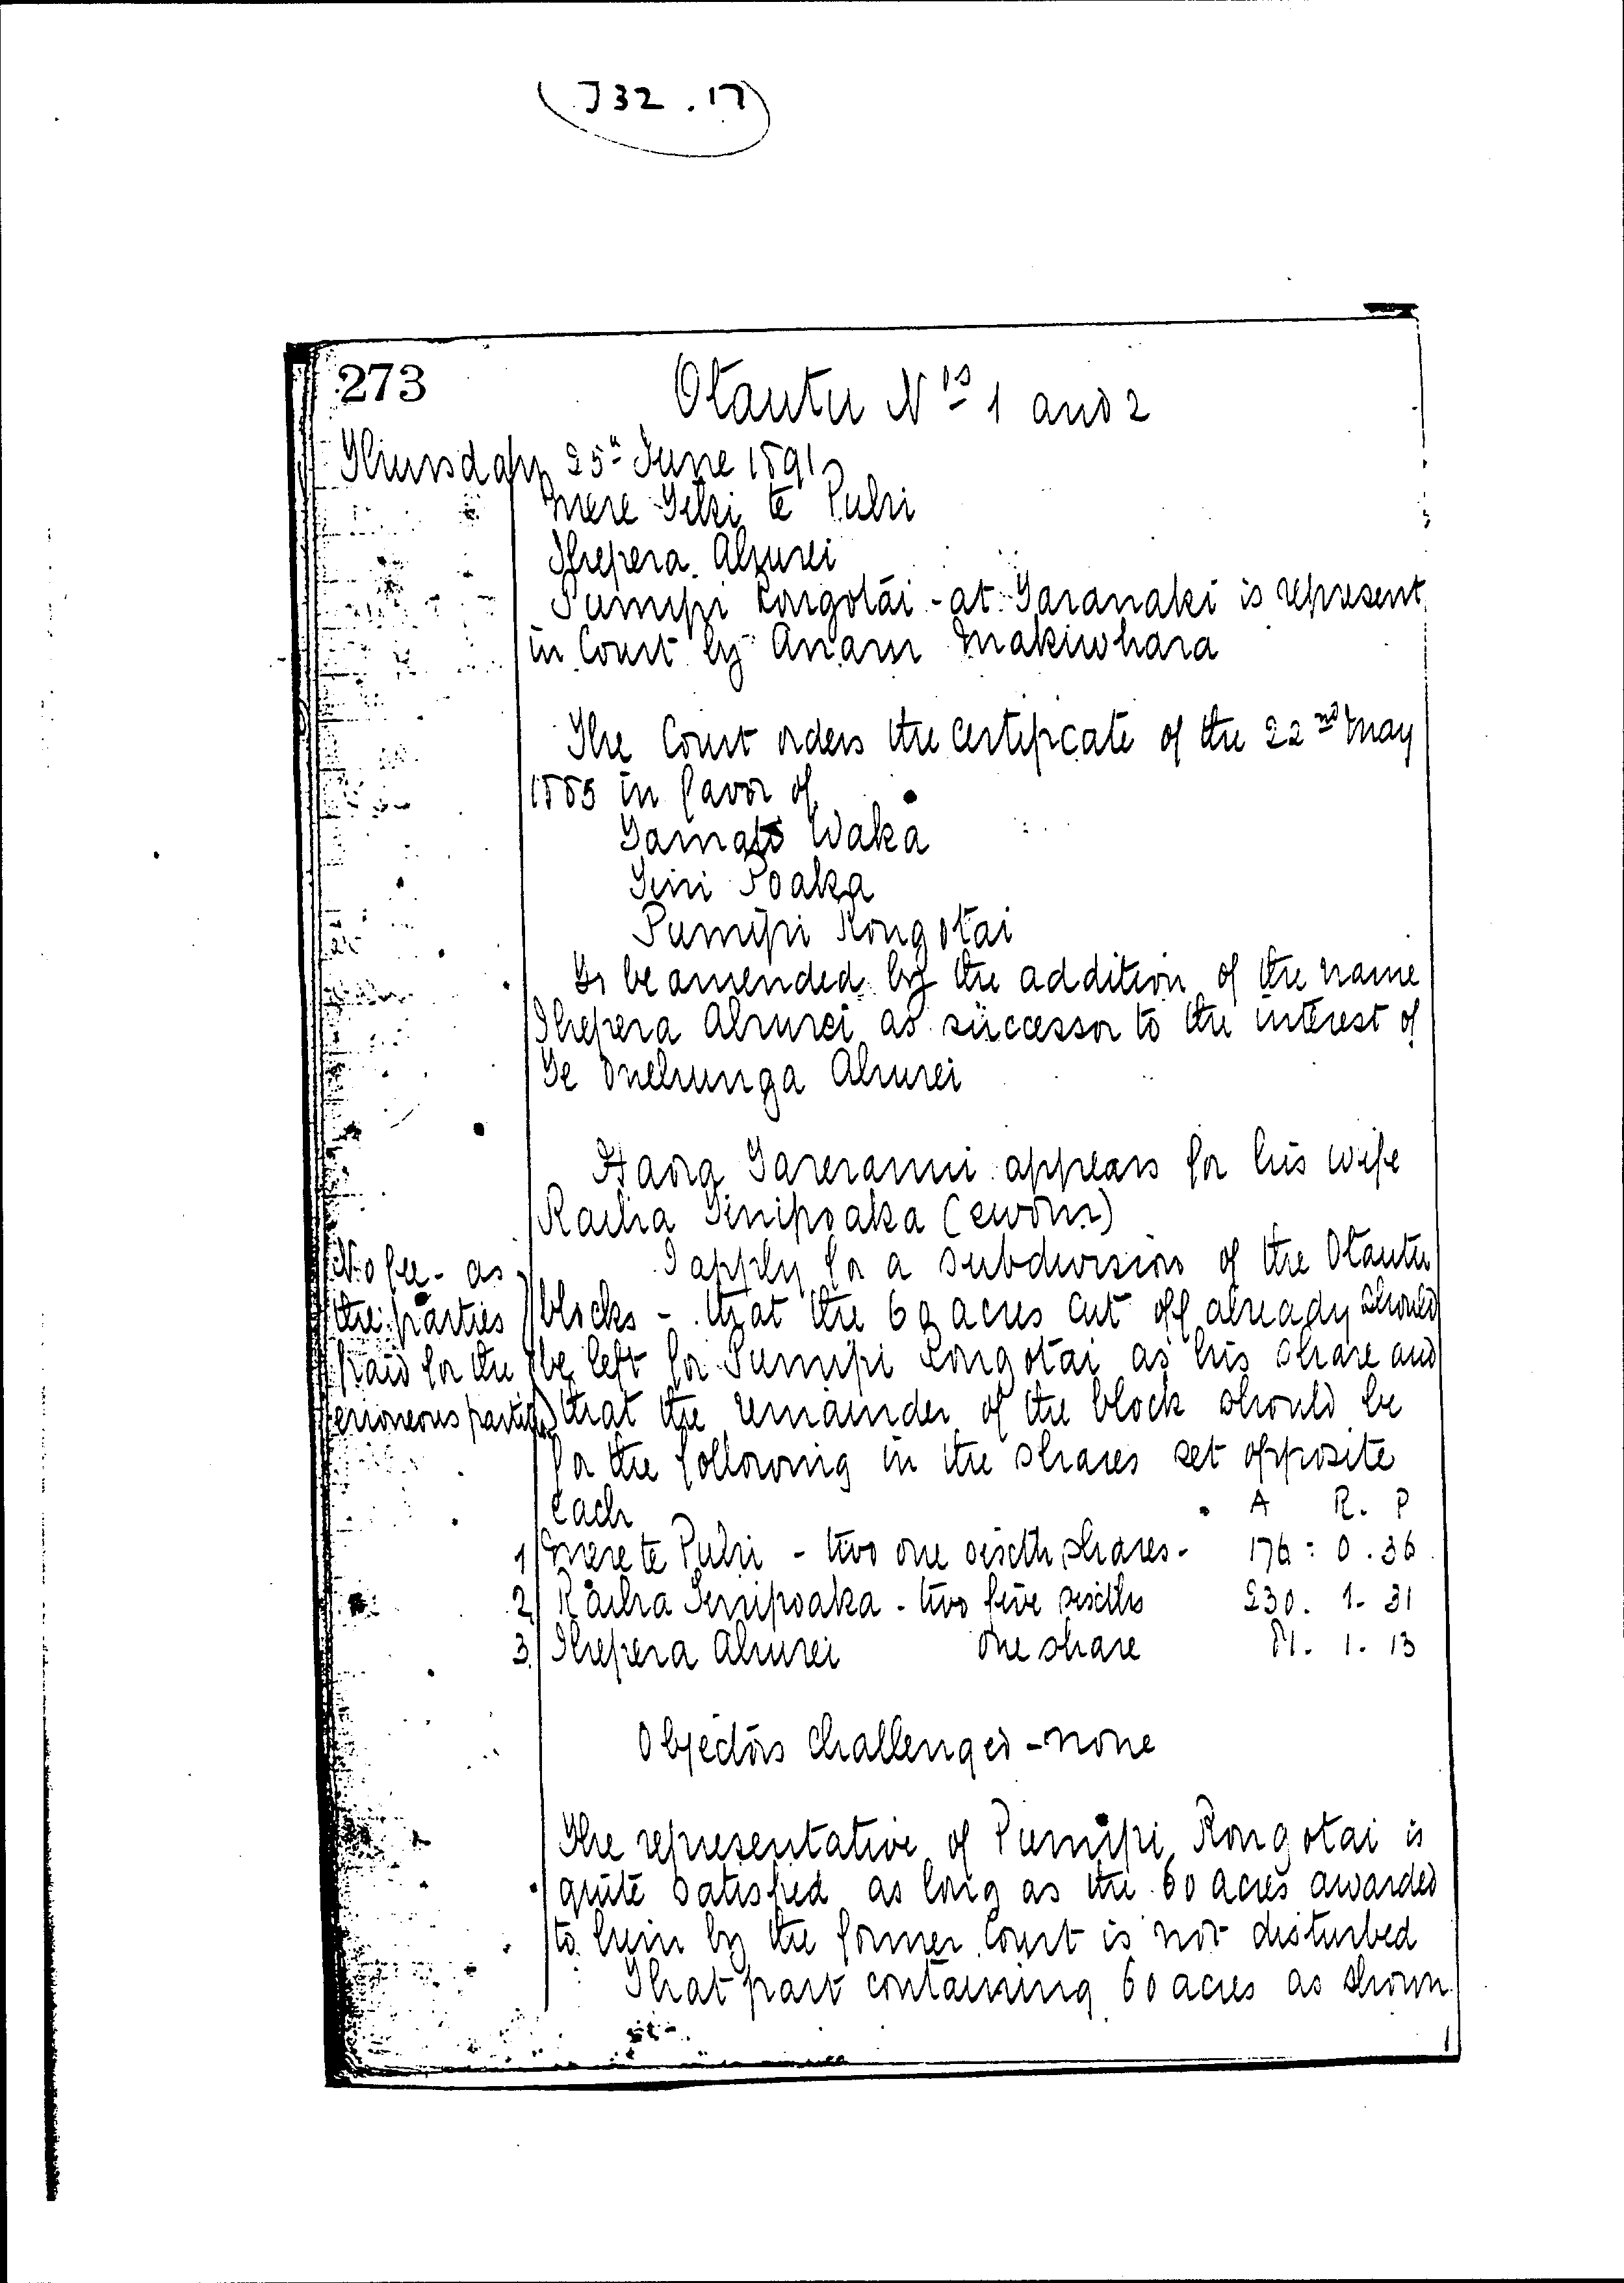 J32.17
273
Otautu Nos 1 and 2
Thursday 25th June 1891
Mere Teki te Puhi
Ihepera Ahurei
Pumipi Rongotai - at Taranaki is represent
in Court by Anaru Makiwhara
The Court orders the certificate of the 22nd May
1885 in favor of
Tamati Waka
Tini Poaka
Pumipi Rongotai
To be amended by the addition of the name
Ihepera Ahurei as successor to the interest of
Te Onehunga Ahurei
Haora Tareranui appears for his wife
Raiha Tinipoaka (sworn)
I apply for a subdivision of the Otautu
blocks - that the 60 acres cut off already should
be left for Pumipi Rongotai as his share and
that the remainder of the block should be
for the following in the shares set opposite
each
No fee - as
the parties
paid for the
erroneous partition
A R. P
1 Mere te Puhi - two one sixth shares - 176 : 0 . 36
2 Raiha Tinipoaka - two five sixths 230. 1. 31
3. Ihepera Ahurei one share 81. 1. 13
Objectors challenged - none
The representative of Pumipi Rongotai is
quite satisfied as long as the 60 acres awarded
to him by the former Court is not disturbed
That part containing 60 acres as shown